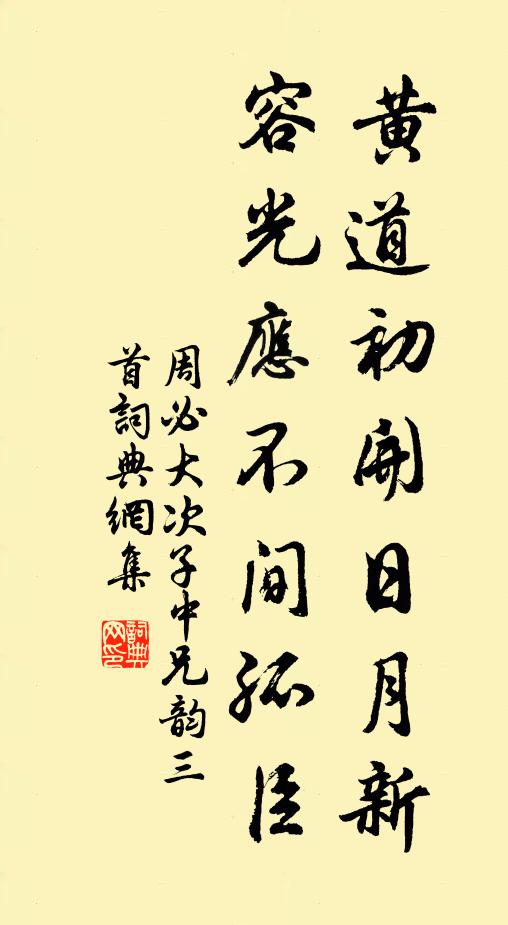 黄道初開日月新
容光應不間孤臣
周必大次子中兄韵三
首詞典網集
詞典
网印